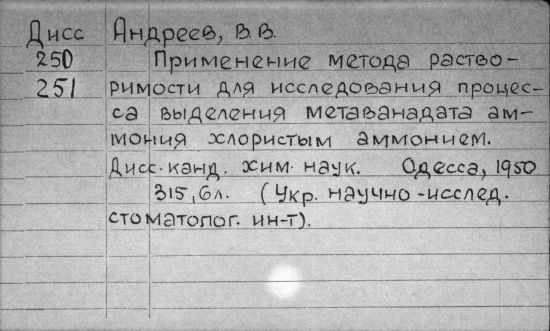 Дисс Андреев, В.В.
250 Применение метода раство-
251 римости для исследования процес-
са выделения метаванадата ам-
мония хлористым аммонием.
Дисс. канд. хим. наук. Одесса, 1950
315, 6 л. (Укр. научно-исслед.
стоматолог. ин-т).